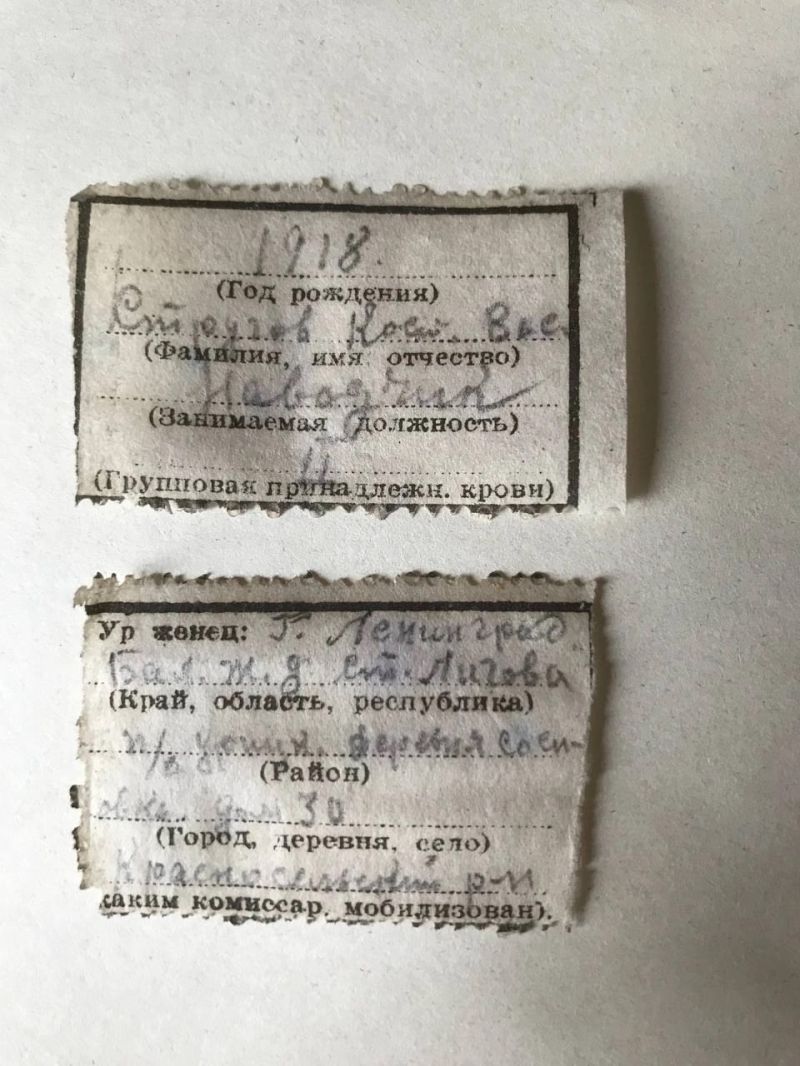 1918.
(Год рождения)
Стругов Кост. Вас
(Фамилия, имя отчество)
Наводчик
(Занимаемая должность)
II
(Групповая принадлежн. крови)
Ур женец: Г. Ленинград
Бал. ж. д ст. Лигова
(Край, область, республика)
п/о деревня Соси-
(Район)
овка. дом 30
(Город, деревня, село)
Красносельский р-н
каким комиссар. мобилизован).